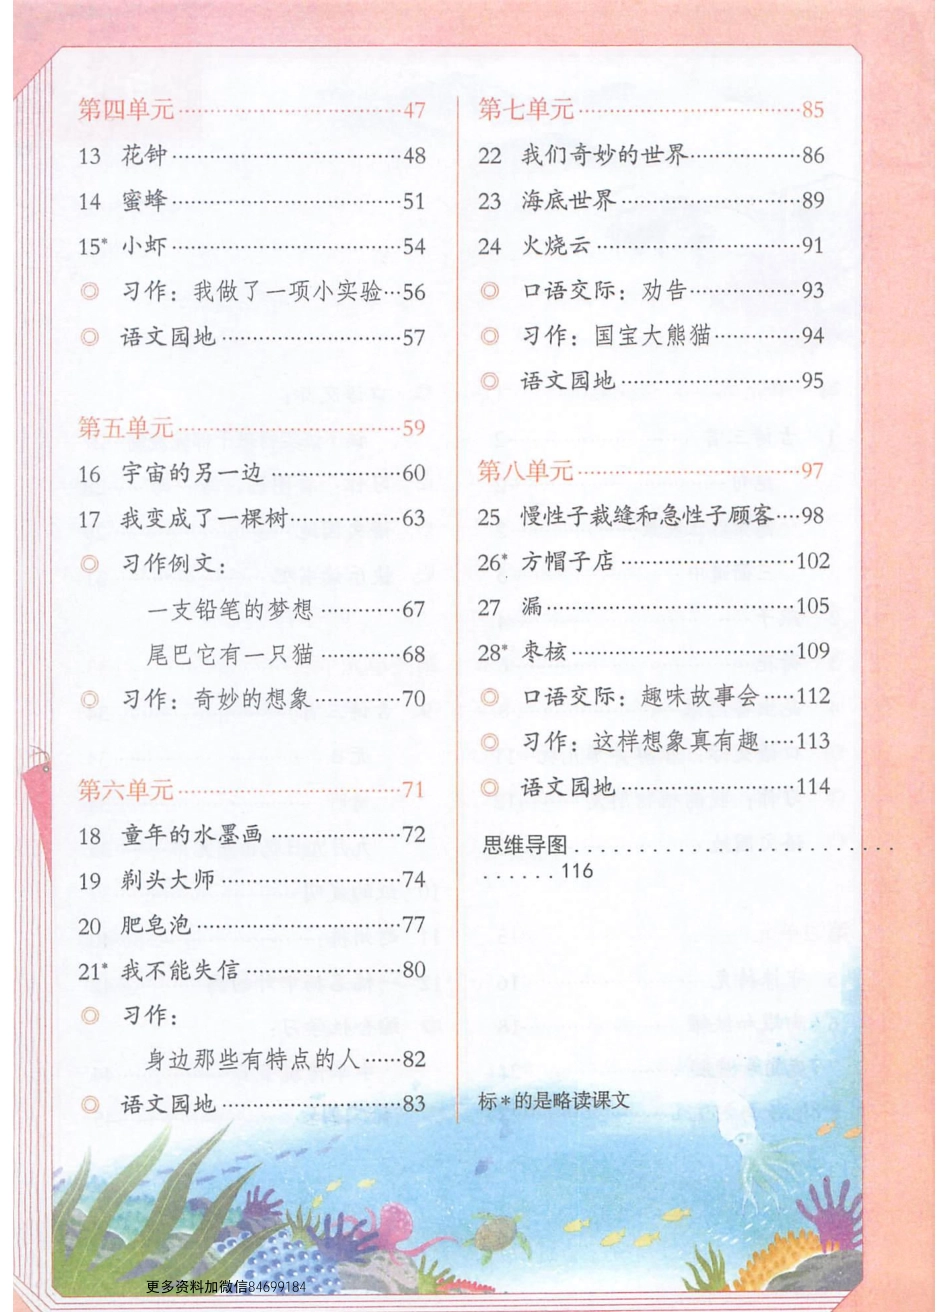 第四单元……47
13 花钟……48
14 蜜蜂……51
15* 小虾……54
◎ 习作：我做了一项小实验…56
◎ 语文园地……57
第五单元……59
16 宇宙的另一边……60
17 我变成了一棵树……63
◎ 习作例文：
一支铅笔的梦想……67
尾巴它有一只猫……68
◎ 习作：奇妙的想象……70
第六单元……71
18 童年的水墨画……72
19 剃头大师……74
20 肥皂泡……77
21* 我不能失信……80
◎ 习作：
身边那些有特点的人……82
◎ 语文园地……83
第七单元……85
22 我们奇妙的世界……86
23 海底世界……89
24 火烧云……91
◎ 口语交际：劝告……93
◎ 习作：国宝大熊猫……94
◎ 语文园地……95
第八单元……97
25 慢性子裁缝和急性子顾客…98
26* 方帽子店……102
27 漏……105
28* 枣核……109
◎ 口语交际：趣味故事会……112
◎ 习作：这样想象真有趣……113
◎ 语文园地……114
思维导图..............................
.......116
标*的是略读课文
更多资料加微信84699184